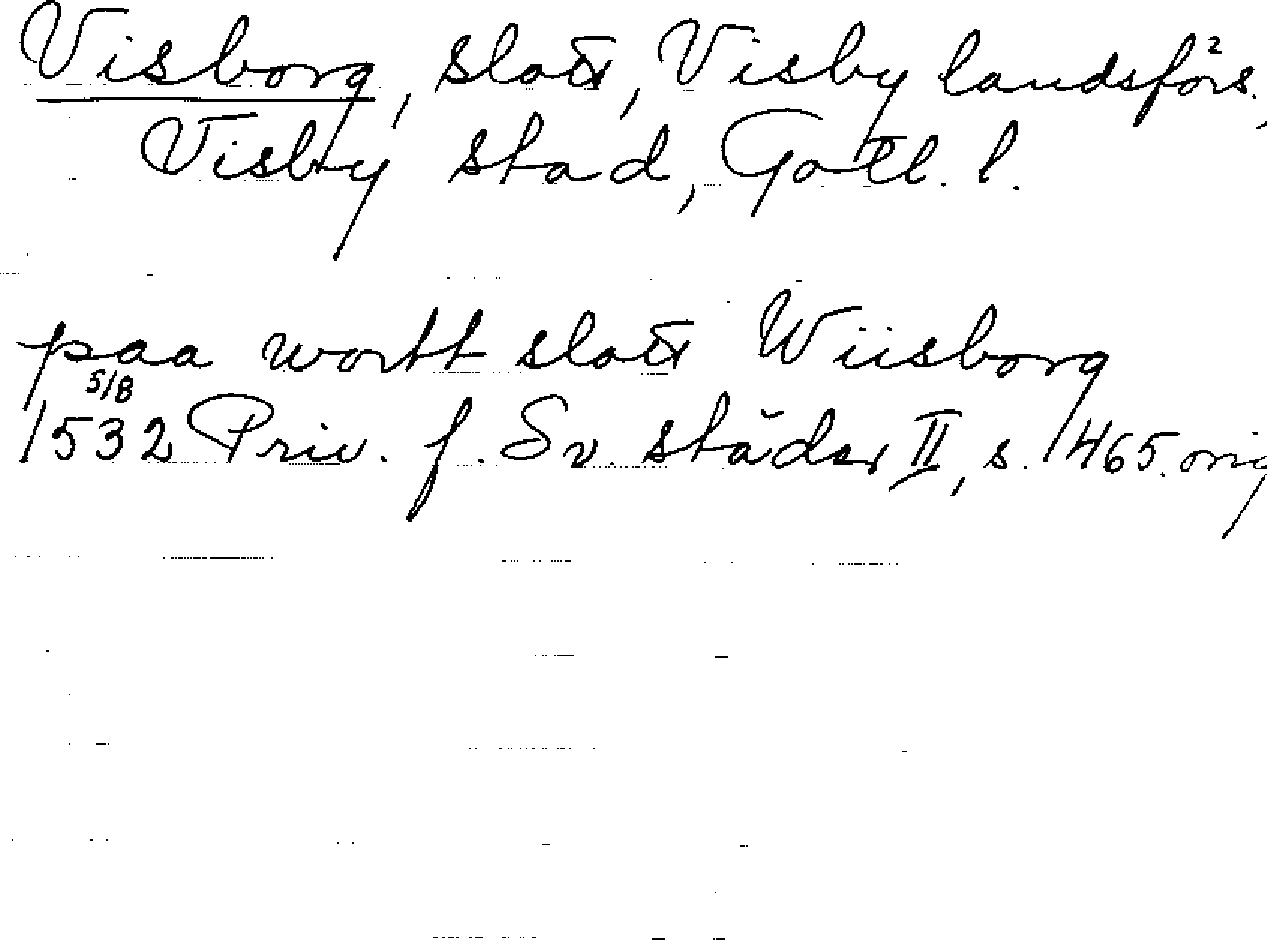 Visborg, slott, Visby landsförs.,
Visby stad, Gotl. l.
paa wortt slott Wiisborg
5/8
1532 Priv. f. Sv städer II, s. 465. orig